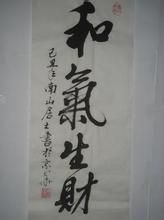 和氣生財
己丑年南山居士書於京華